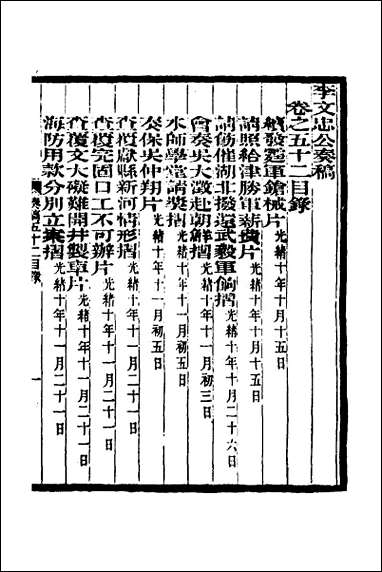 李文忠公奏稿
卷之五十二目錄
續發霆軍鎗械片 光緒十年十月十五日
請照給津勝軍薪糧片 光緒十年十月十五日
請飭催湖北撥還武毅軍餉摺 光緒十年十月二十六日
會奏吳大澂赴朝鮮摺 光緒十年十一月初三日
水師學堂請獎摺 光緒十年十一月初五日
奏保吳仲翔片 光緒十年十一月初五日
查覆獻縣新河情形摺 光緒十年十一月二十一日
查覆完固口工不可辦片 光緒十年十一月二十一日
查覆文大礙難開井製韋片 光緒十年十一月二十一日
海防用款分別立案摺 光緒十年十一月二十一日
奏稿五十二目錄
一